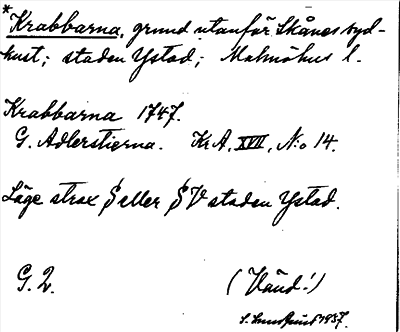 * Krabbarna, grund utanför Skånes syd-
kust; staden Ystad; Malmöhus l.
Krabbarna 1747.
G. Adlerstierna. Kr A, XVII, N:o 14.
Läge strax S eller SV staden Ystad.
G. 2. (Vänd!)
S. 1937.